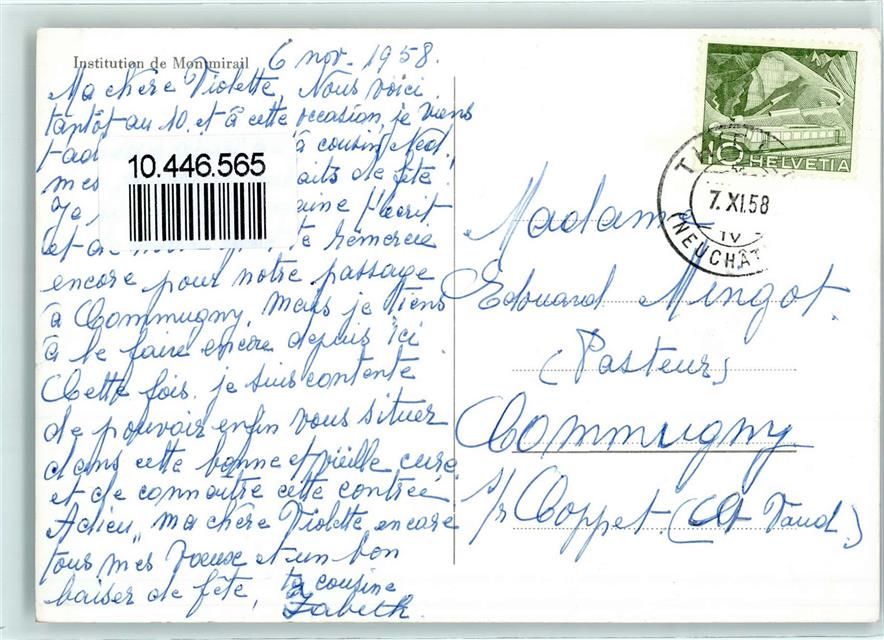 Institution de Montmirail
6 nov. 1958.
Ma chère Violette, Nous voici
tantôt au 10. et à cette occasion, je viens
à cousin Ned,
mes aits de fête!
Je t'écrit
et de te remercie
encore pour notre passage
à Commugny, mais je tiens
à le faire encore depuis ici
Cette fois, je suis contente
de pouvoir enfin vous situer
dans cette bonne et vieille cure
et de connaître cette contrée
Adieu, ma chère Violette, encore
tous mes voeux et un bon
baiser de fête, ta cousine
Zabeth.
10.446.565
10 HELVETIA
7. XI. 58
IV
(NEUCHÂT
Madame
Edouard Mingot.
(Pasteur)
Commugny
s/r Coppet (Ct Vaud.)